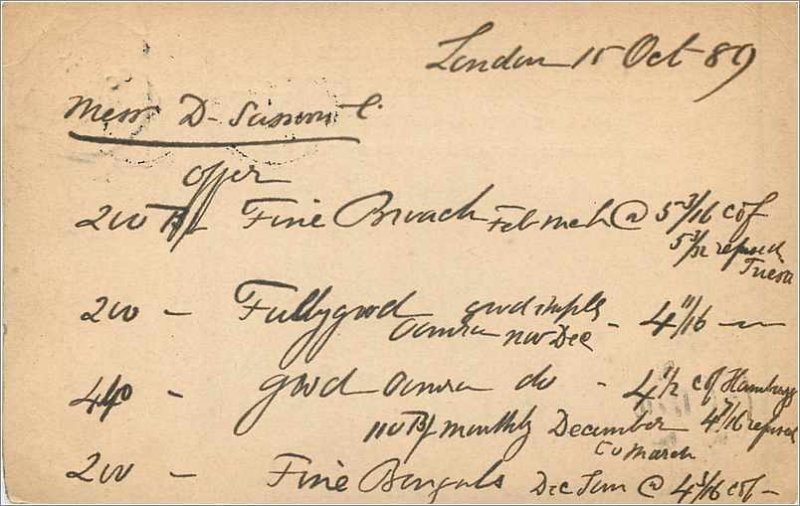 London 15 Oct 89
Messr D. Sassoon & C.
offer
200 B/ Fine Broach Feb Mch @ 5 3/16 cif
5 5/32 refused
200 - Fullygood
Oomra Nov Dec - 4 11/16 -
440 - good Oomra do - 4 1/2 cif Hamburg
110 B/ monthly December 4 7/16 refused
to March
200 - Fine Bengals Dec Jan @ 4 3/16 cif -